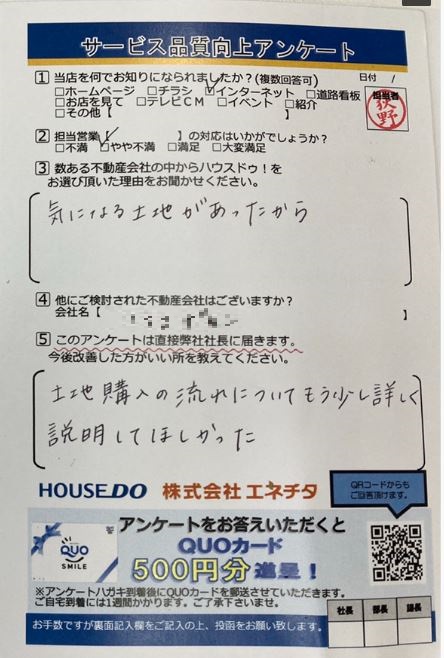 サービス品質向上アンケート
1 当店を何でお知りになられましたか?(複数回答可) 日付 /
□ホームページ □チラシ ☑インターネット □道路看板
□お店を見て □テレビCM □イベント □紹介
□その他【 】
担当者
荻野
2 担当営業【 】の対応はいかがでしょうか?
□不満 ☑やや不満 □満足 □大変満足
3 数ある不動産会社の中からハウスドゥ!を
お選び頂いた理由をお聞かせください。
気になる土地があったから
4 他にご検討された不動産会社はございますか?
会社名【 】
5 このアンケートは直接弊社社長に届きます。
今後改善した方がいい所を教えてください。
土地購入の流れについてもう少し詳しく
説明してほしかった
HOUSEDO 株式会社 エネチタ
QRコードからも
ご回答頂けます。
アンケートをお答えいただくと
QUOカード
500円分 進呈!
QUO
SMILE
※アンケートハガキ到着後にQUOカードを郵送させていただきます。
ご自宅到着には1週間かかります。ご了承下さいませ。
お手数ですが裏面記入欄をご記入の上、投函をお願い致します。
社長 部長 課長